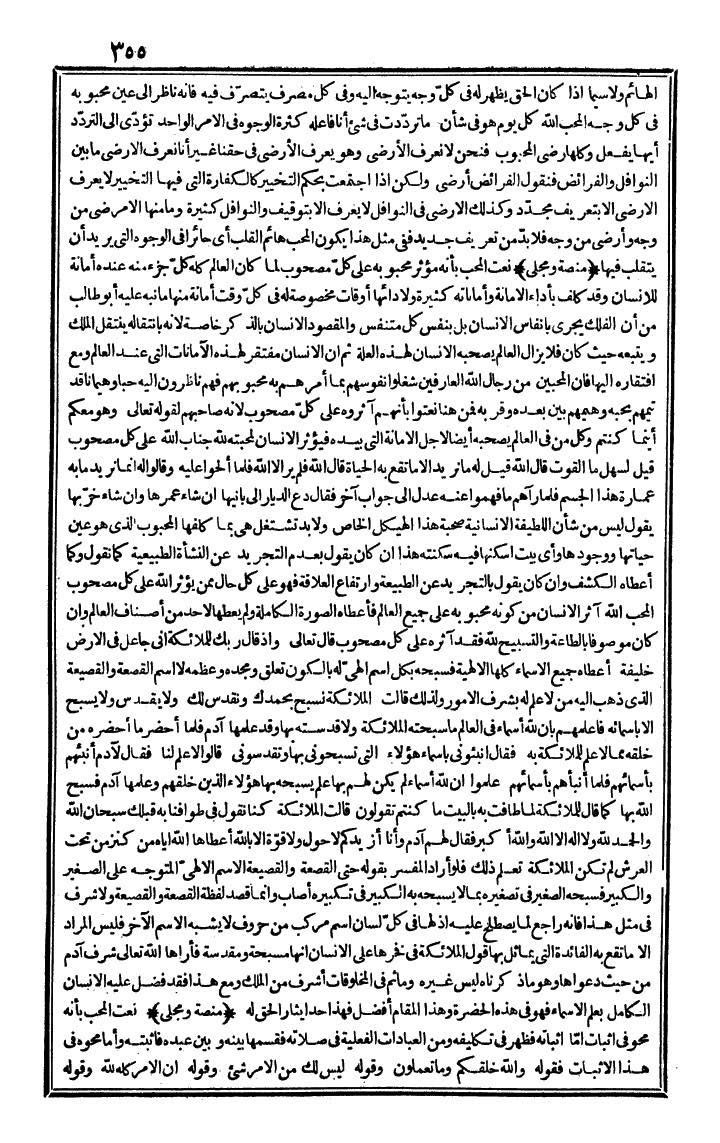 ٣٥٥
الهائم ولا سيما اذا كان الحق يظهر له فى كل وجه يتوجه اليه وفى كل مصرف يتصرف فيه فانه ناظر الى عين محبوبه
فى كل وجه المحب الله كل يوم هو فى شأن ماترددت فى شئ أنا فاعله كثرة الوجوه فى الامر الواحد تؤدى الى التردد
أيها يفعل وكلها رضى المحبوب فنحن لا نعرف الأرضى وهو يعرف الأرضى فى حقنا غير أنا نعرف الارضى ما بين
النوافل والفرائض فنقول الفرائض أرضى ولكن اذا اجتمعت بحكم التخيير كالكفارة التى فيها التخيير لا يعرف
الارضى الا بتعريف مجدد وكذلك الارضى فى النوافل لا يعرف الا بتوقيف والنوافل كثيرة وما منها الا مرضى من
وجه وأرضى من وجه فلا بد من تعريف جديد ففى مثل هذا يكون المحب هائم القلب أى حائرا فى الوجوه التى يريد أن
يتقلب فيها ﴿منصة ومجلى﴾ نعت المحب بأنه مؤثر محبوبه على كل مصحوب لما كان العالم كله كل جزء منه عنده أمانة
للانسان وقد كلف بأداء الامانة وأماناته كثيرة ولادائها أوقات مخصوصة له فى كل وقت أمانة منها ما نبه عليه أبو طالب
من أن الفلك يجرى بانفاس الانسان بل بنفس كل متنفس والمقصود الانسان بالذكر خاصة لانه بانتقاله ينتقل الملك
ويتبعه حيث كان فلا يزال العالم يصحبه الانسان لهذه العلة ثم ان الانسان مفتقر لهذه الأمانات التى عند العالم ومع
افتقاره اليها فان المحبين من رجال الله العارفين شغلوا نفوسهم بما أمرهم به محبوبهم فهم ناظرون اليه حبا وهيمانا قد
تيمهم بحبه وهيمهم بين بعده وقربه فمن هنا نعتوا بأنهم آثروه على كل مصحوب لانه صاحبهم لقوله تعالى وهو معكم
أينما كنتم وكل من فى العالم يصحبه أيضا لاجل الامانة التى بيده فيؤثر الانسان لمحبته لله جناب الله على كل مصحوب
قيل لسهل ما القوت قال الله قيل له ما نريد الا ما تقع به الحياة قال الله فلم ير الا الله فلما ألحوا عليه وقالوا له انما نريد ما به
عمارة هذا الجسم فلما رآهم ما فهموا عنه عدل الى جواب آخر فقال دع الديار الى بانيها ان شاء عمرها وان شاء خربها
يقول ليس من شأن اللطيفة الانسانية صحبة هذا الهيكل الخاص ولا بد تشتغل هى بما كلفها المحبوب الذى هو عين
حياتها ووجودها وأى بيت اسكنها فيه سكنته هذا ان كان يقول بعدم التجريد عن النشأة الطبيعية كما نقول وكما
أعطاه الكشف وان كان يقول بالتجريد عن الطبيعة وارتفاع العلاقة فهو على كل حال ممن يؤثر الله على كل مصحوب
المحب الله آثر الانسان من كونه محبوبه على جميع العالم فأعطاه الصورة الكاملة ولم يعطها لاحد من أصناف العالم وان
كان موصوفا بالطاعة والتسبيح لله فقد آثره على كل مصحوب قال تعالى واذ قال ربك للملائكة انى جاعل فى الارض
خليفة أعطاه جميع الاسماء كلها الالهية فسبحه بكل اسم الهى له بالكون تعلق ومجده وعظمه لا اسم القصعة والقصيعة
الذى ذهب اليه من لا علم له بشرف الامور ولذلك قالت الملائكة نسبح بحمدك ونقدس لك ولا يقدس ولا يسبح
الا باسمائه فاعلمهم بان لله أسماء فى العالم ما سبحته الملائكة ولا قدسته بها وقد علمها آدم فلما أحضر ما أحضره من
خلقه مما لا علم للملائكة به فقال انبئونى باسماء هؤلاء التى تسبحونى بها وتقدسونى قالوا لا علم لنا فقال لآدم أنبئهم
بأسمائهم فلما أنبأهم بأسمائهم علموا ان لله أسماء لم يكن لهم بها علم يسبحه بها هؤلاء الذين خلقهم وعلمها آدم فسبح
الله بها كما قال للملائكة لما طافت به بالبيت ما كنتم تقولون قالت الملائكة كنا نقول فى طوافنا به قبلك سبحان الله
والحمد لله ولا اله الا الله والله أكبر فقال لهم آدم وأنا أزيدكم لا حول ولا قوة الا بالله أعطاها الله اياه من كنز من تحت
العرش لم تكن الملائكة تعلم ذلك فلو أراد المفسر بقوله حتى القصعة والقصيعة الاسم الالهى المتوجه على الصغير
والكبير فسبحه الصغير فى تصغيره بما لا يسبحه به الكبير فى تكبيره أصاب وانما قصد لفظة القصعة والقصيعة ولا شرف
فى مثل هذا فانه راجع لما يصطلح عليه اذ لها فى كل لسان اسم مركب من حروف لا يشبه الاسم الآخر فليس المراد
الا ما تقع به الفائدة التى يماثل بها قول الملائكة فى فخرها على الانسان انها مسبحة ومقدسة فأراها الله تعالى شرف آدم
من حيث دعواها وهو ما ذكرناه ليس غيره وما ثم فى المخلوقات أشرف من الملك ومع هذا فقد فضل عليه الانسان
الكامل بعلم الاسماء فهو فى هذه الحضرة وهذا المقام أفضل فهذا حد ايثار الحق له ﴿منصة ومجلى﴾ نعت المحب بأنه
محو فى اثبات امّا اثباته فظهر فى تكليفه ومن العبادات الفعلية فى صلاته فقسمها بينه وبين عبده فاثبته وأما محوه فى
هذا الاثبات فقوله والله خلقكم وما تعملون وقوله ليس لك من الامر شئ وقوله ان الامر كله لله وقوله